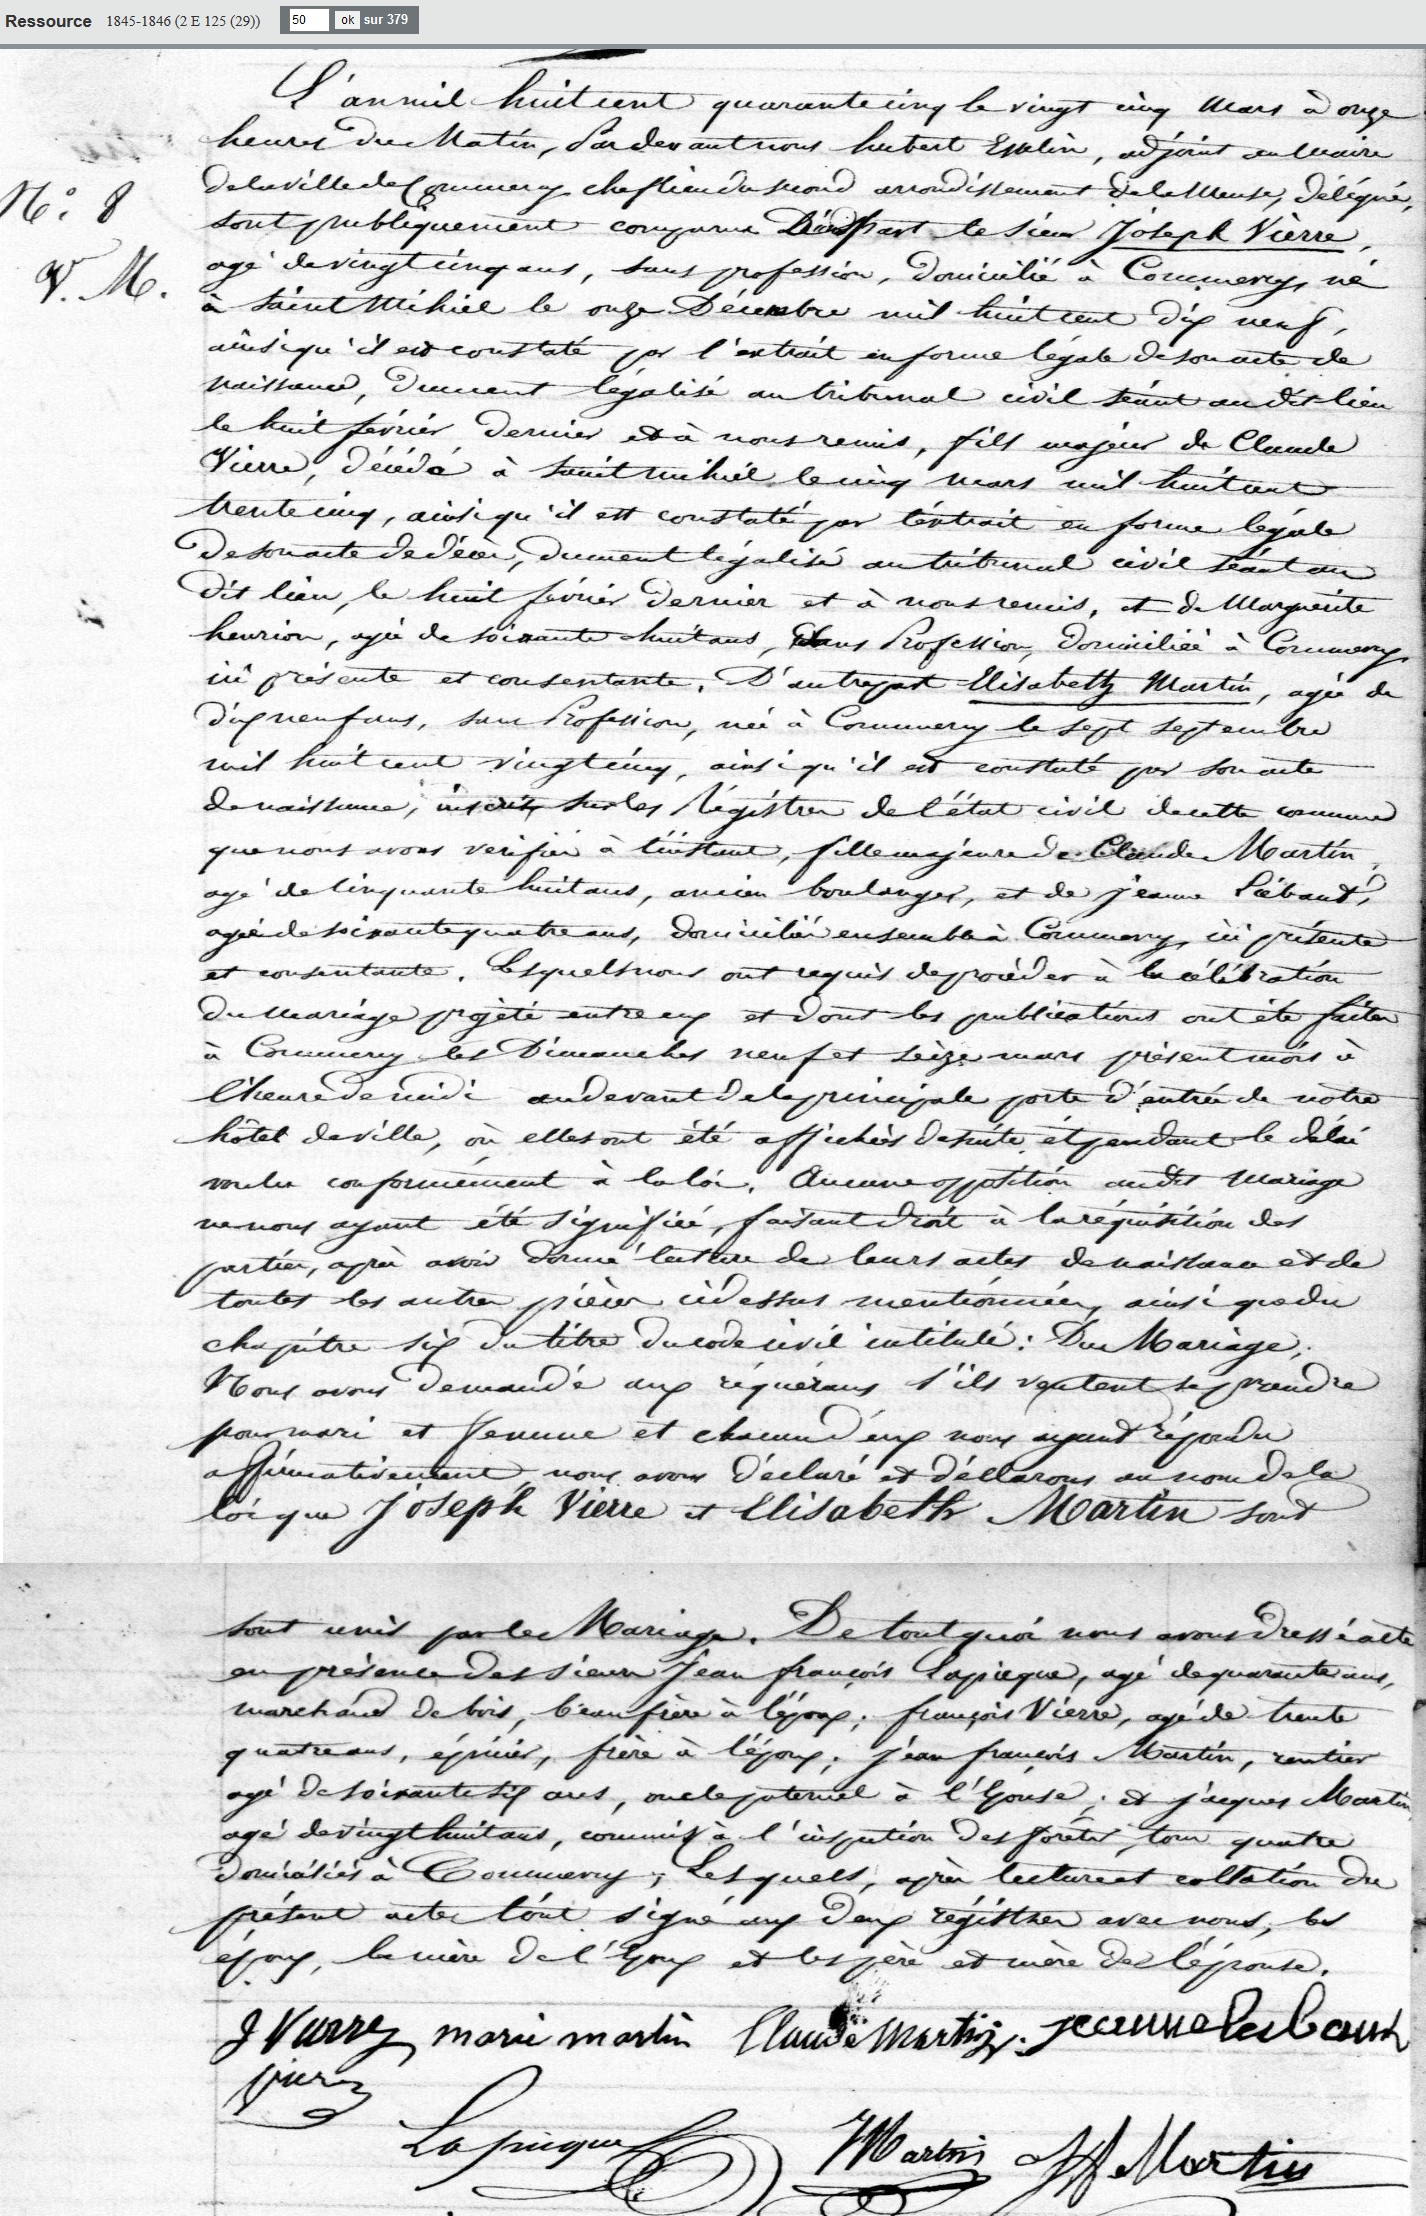 Ressource 1845-1846 (2 E 125 (29)) 50 ok sur 379
L'an mil huit cent quarante cinq le vingt cinq Mars à onze
heures du Matin, Pardevant nous hubert, adjoint au Maire
de la ville de Commercy chef lieu du second arrondissement de la Meuse, délégué,
N.° 8
sont publiquement comparus D'une part le sieur Joseph Vierre,
V. M.
agé de vingt cinq ans, sans profession, domicilié à Commercy, né
à Saint Mihiel le onze Décembre mil huit cent dix neuf,
ainsi qu'il est constaté par l'extrait en forme légale de son acte de
naissance, dument légalisé au tribunal civil séant au dit lieu
le huit février dernier et à nous remis, fils majeur de Claude
Vierre, décédé à saint mihiel le cinq mars mil huit cent
trente cinq, ainsi qu'il est constaté par l'extrait en forme légale
de son acte de décès, dument légalisé au tribunal civil séant au
dit lieu, le huit février dernier et à nous remis, et de Marguerite
henrion, agée de soixante huit ans, sans Profession, domiciliée à Commercy
ici présente et consentante. D'autre part Elisabeth Martin, agée de
dix neuf ans, sans Profession, née à Commercy le sept septembre
mil huit cent vingt cinq, ainsi qu'il est constaté par son acte
de naissance, inscrit sur les Régistres de l'état civil de cette commune
que nous avons vérifié à l'instant, fille majeure de Claude Martin,
agé de cinquante huit ans, ancien boulanger, et de jeanne
agée de soixante quatre ans, domiciliés ensemble à Commercy, ici présente
et consentante. Lesquels nous ont requis de procéder à la célébration
du mariage projété entre eux et dont les publications ont été faites
à Commercy les Dimanches neuf et seize mars présent mois à
l'heure de midi au devant de la principale porte d'entrée de notre
hôtel de ville, où elles ont été affichées de suite et pendant le délai
voulu conformément à la loi. Aucune opposition audit Mariage
ne nous ayant été signifiée, faisant droit à la réquisition des
parties, après avoir donné lecture de leurs actes de naissance et de
toutes les autres pièces ci dessus mentionnées, ainsi que du
chapitre six du titre du code civil intitulé: Du Mariage,
Nous avons demandé aux réquérans s'ils veulent se prendre
pour mari et femme et chacun d'eux nous ayant répondu
affirmativement, nous avons déclaré et déclarons au nom de la
loi que Joseph Vierre et Elisabeth Martin sont
sont unis par le Mariage. De tout quoi nous avons dressé acte
en présence des sieurs Jean françois Lapicque, agé de quarante ans,
marchand de bois, beau frère à l'époux; françois Vierre, agé de trente
quatre ans, épicier, frère à l'époux; jean françois Martin, rentier
agé de soixante six ans, oncle paternel à l'épouse; et jacques Martin
agé de vingt huit ans, commis à l'inspection des forêts, tous quatre
domiciliés à Commercy; Lesquels, après lecture et collation du
présent acte l'ont signé aux deux régistres avec nous, les
époux, la mère de l'époux et les père et mère de l'épouse.
J Vierre marie martin Claude Martin jeanne
Lapicque JMartin JfMartin